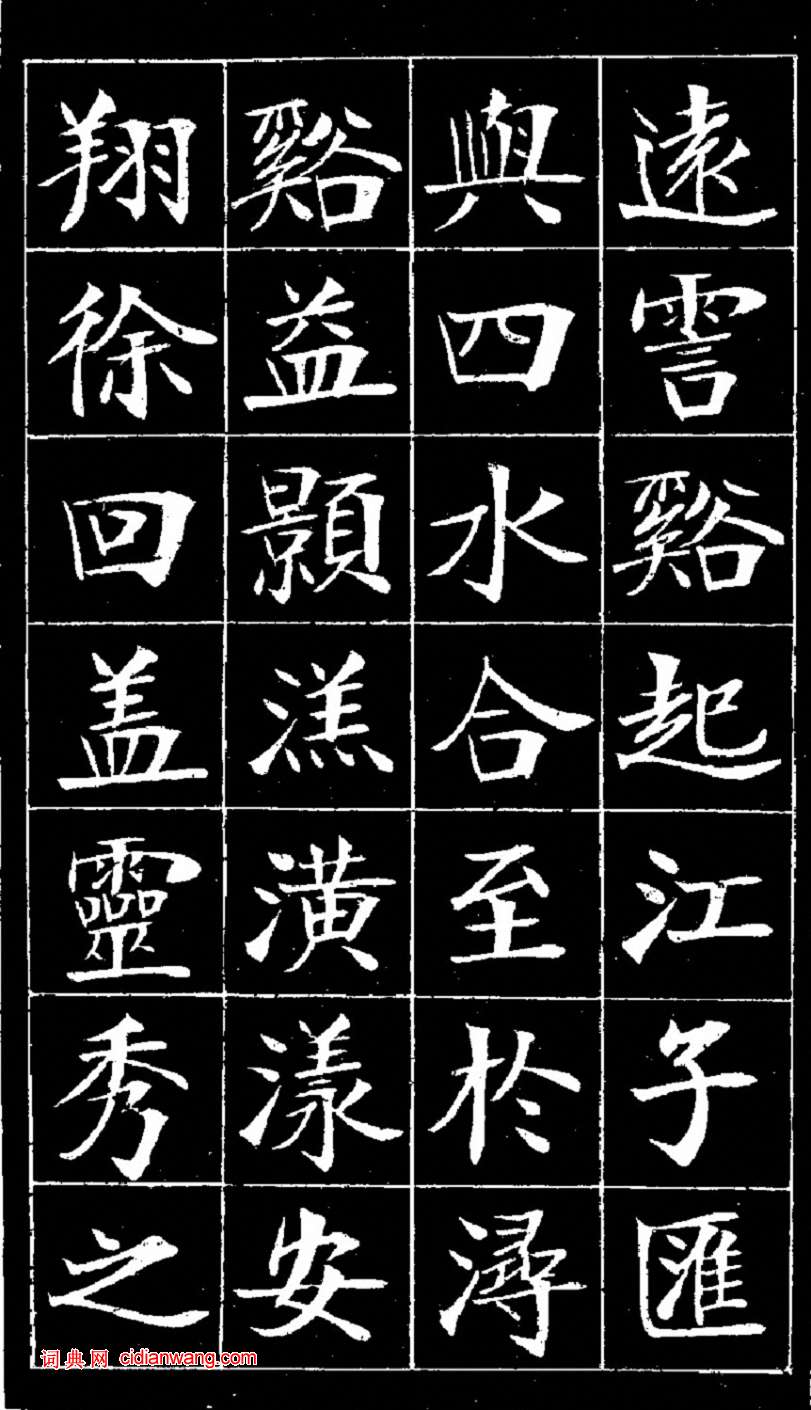 遠霅谿起江子匯
與四水合至於潯
谿益顥溔潢漾安
翔徐回盖靈秀之
词典网 cidianwang.com